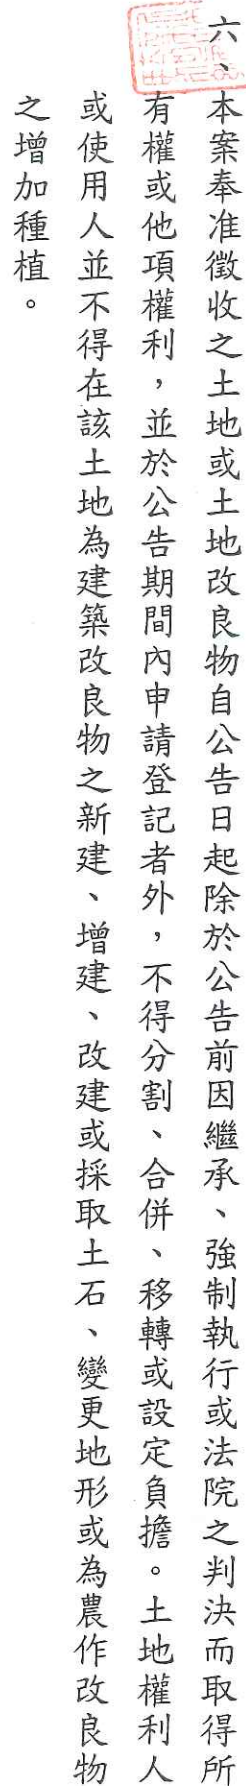 六、本案奉准徵收之土地或土地改良物自公告日起除於公告前因繼承、強制執行或法院之判決而取得所
有權或他項權利，並於公告期間內申請登記者外，不得分割、合併、移轉或設定負擔。土地權利人
或使用人並不得在該土地為建築改良物之新建、增建、改建或採取土石、變更地形或為農作改良物
之增加種植。